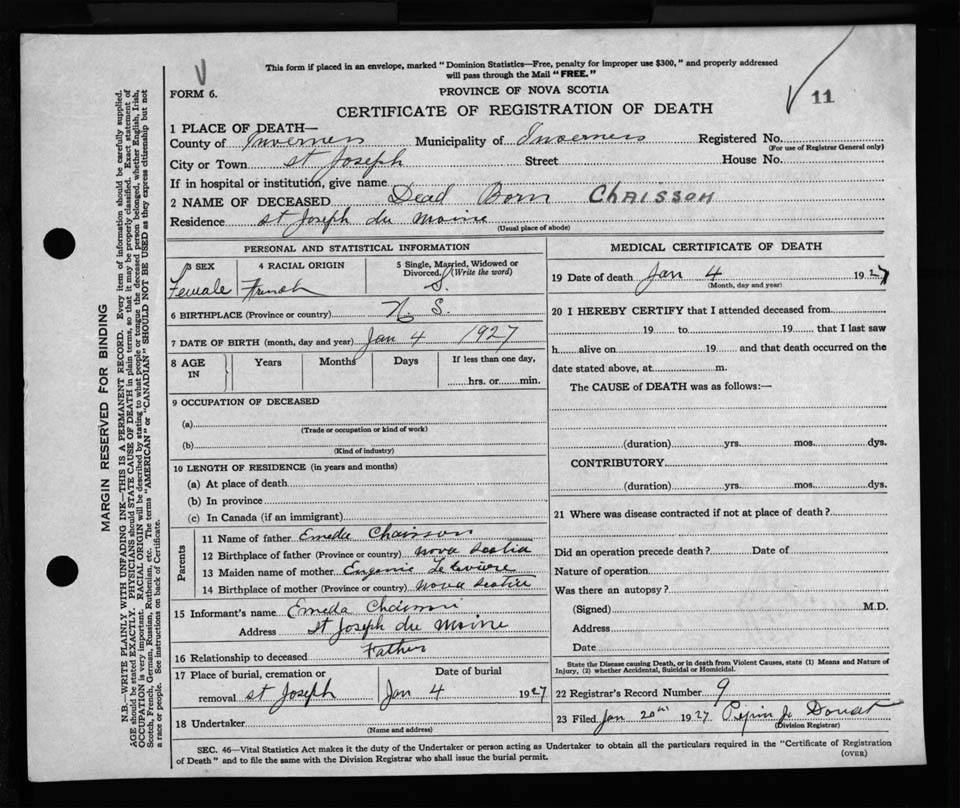 This form if placed in an envelope, marked "Dominion Statistics—Free, penalty for improper use $300," and properly addressed
will pass through the Mail "FREE."
FORM 6.
PROVINCE OF NOVA SCOTIA
CERTIFICATE OF REGISTRATION OF DEATH
11
1 PLACE OF DEATH—
County of Inverness Municipality of Inverness Registered No.
(For use of Registrar General only)
City or Town St Joseph Street House No.
If in hospital or institution, give name
2 NAME OF DECEASED Dead Born Chaisson
Residence St Joseph du Moine
(Usual place of abode)
PERSONAL AND STATISTICAL INFORMATION
3 SEX 4 RACIAL ORIGIN 5 Single, Married, Widowed or
Divorced. (Write the word)
Female French S.
6 BIRTHPLACE (Province or country) N. S.
7 DATE OF BIRTH (month, day and year) Jan 4 1927
8 AGE IN Years Months Days If less than one day,
hrs. or min.
9 OCCUPATION OF DECEASED
(a)
(Trade or occupation or kind of work)
(b)
(Kind of industry)
10 LENGTH OF RESIDENCE (in years and months)
(a) At place of death
(b) In province
(c) In Canada (if an immigrant)
Parents
11 Name of father Emeda Chaisson
12 Birthplace of father (Province or country) Nova Scotia
13 Maiden name of mother Eugenie
14 Birthplace of mother (Province or country) Nova Scotia
15 Informant's name Emeda
Address St Joseph du Moine
16 Relationship to deceased Father
17 Place of burial, cremation or Date of burial
removal St Joseph Jan 4 1927
18 Undertaker
(Name and address)
MEDICAL CERTIFICATE OF DEATH
19 Date of death Jan 4 1927
(Month, day and year)
20 I HEREBY CERTIFY that I attended deceased from
19 to 19 that I last saw
h alive on 19 and that death occurred on the
date stated above, at m.
The CAUSE of DEATH was as follows:—
(duration) yrs. mos. dys.
CONTRIBUTORY
(duration) yrs. mos. dys.
21 Where was disease contracted if not at place of death?
Did an operation precede death? Date of
Nature of operation
Was there an autopsy?
(Signed) M.D.
Address
Date
State the Disease causing Death, or in death from Violent Causes, state (1) Means and Nature of
Injury, (2) whether Accidental, Suicidal or Homicidal.
22 Registrar's Record Number 9
23 Filed Jan 20th 1927 Pepin J. Doucet
(Division Registrar)
SEC. 46—Vital Statistics Act makes it the duty of the Undertaker or person acting as Undertaker to obtain all the particulars required in the "Certificate of Registration
of Death" and to file the same with the Division Registrar who shall issue the burial permit.
(OVER)
MARGIN RESERVED FOR BINDING
N.B.—WRITE PLAINLY WITH UNFADING INK—THIS IS A PERMANENT RECORD. Every item of information should be carefully supplied.
AGE should be stated EXACTLY. PHYSICIANS should STATE CAUSE OF DEATH in plain terms, so that it may be properly classified. Exact statement of
OCCUPATION is very important. RACIAL ORIGIN will be described by stating to what people or tongue the deceased person belonged, whether English, Irish,
Scotch, French, German, Russian, Ruthenian, etc. The terms "AMERICAN" or "CANADIAN" SHOULD NOT BE USED as they express citizenship but not
a race or people. See instructions on back of Certificate.